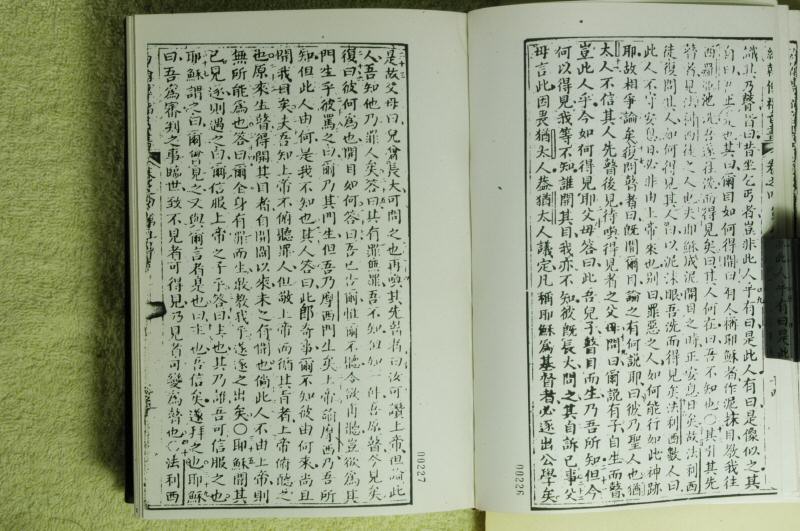 識其乃瞽者曰昔坐乞丐者豈非此人乎有曰是此人有曰是像似之其
自曰是也其曰爾目如何得開曰有人稱耶穌者作泥抹目教我往
西羅亞池洗吾遂往洗而得見矣曰其人何在曰吾不知也○其引其先
瞽者見法利西之人也夫耶穌成泥開目之時正安息日矣故法利西
徒復問其人如何得見其人曰以泥沫眼吾洗而得見矣法利西數人曰
此人不守安息日必非由上帝來也別曰罪惡之人如何能行如此神跡
耶故相爭論矣復問瞽者曰既開爾目論之有何說耶曰彼乃聖人也猶
太人不信其人先瞽後見待喚得見者之父母問曰爾說有子自生而瞽
豈此人乎今如何得見耶父母答曰此吾兒子瞽目而生乃吾所知但今
何以得見我等不知誰開其目我亦不知彼既長大問之其自訴已事父
母言此因畏猶太人蓋猶太人議定凡稱耶穌為基督者必逐出公學矣
00226
是故父母曰兒曾長大可問之也再喚其先瞽者曰汝可讚上帝但論此
人吾知他乃罪人矣答曰其有罪無罪吾不知但知一件吾原瞽今見矣
復曰彼何為也開目如何答曰吾已言爾惟爾不聽今欲再聽豈欲為其
門生乎彼罵之曰爾乃其門生但吾乃摩西門生矣上帝諭摩西乃吾所
知但此人由何是我不知也其人答曰此郎奇事爾不知彼由何來尚且
開我目矣夫吾知上帝不俯聽罪人但敬上帝而循其旨者上帝俯聽之
也原來生瞽得開其目者自開闢以來未之有聞也倘此人不由上帝則
無所能為也答曰爾全身有罪而生敢教我乎遂逐之出矣○耶穌聞其
已見逐則遇之曰爾信服上帝之子乎答曰主也其乃誰吾可信服之也
耶穌謂之曰爾曾見之又與爾言者是也曰主也吾信矣遂拜之也耶穌
曰吾為審判之事臨世致不見者可得見乃見者可變為瞽也○法利西
00227